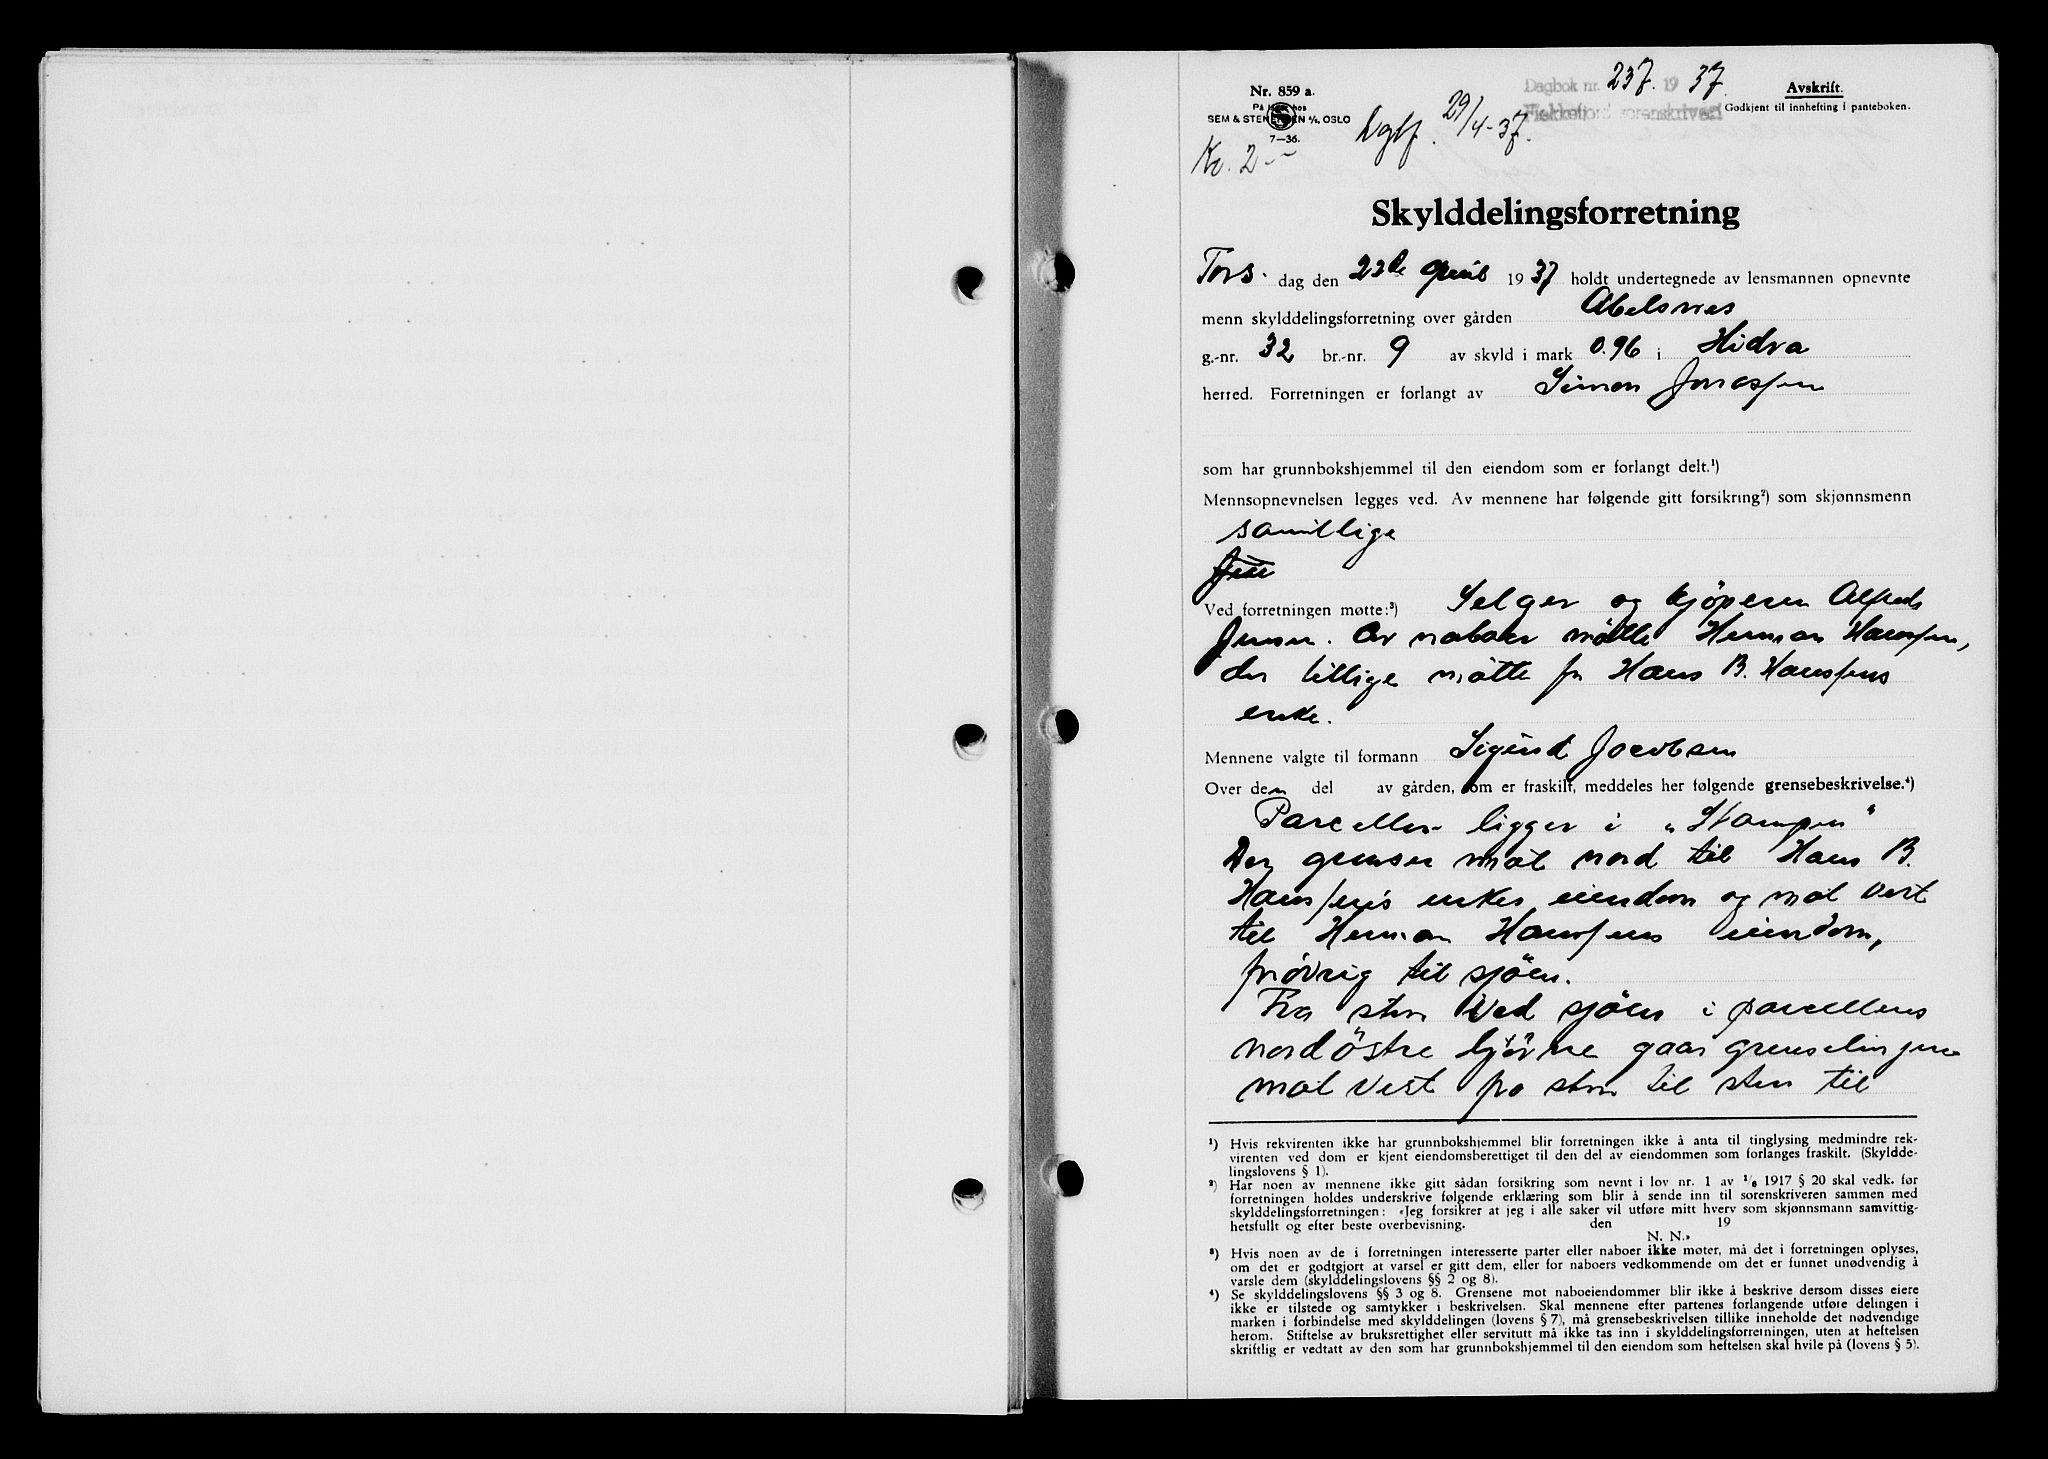 Nr. 859 a.
På lager hos
SEM & STENERSEN A/S, OSLO
7—36.
Kr. 2
Dglf. 29/4-37.
Dagbok nr. 237. 1937.
Flekkefjord sorenskriveri
Avskrift.
Godkjent til innhefting i panteboken.
Skylddelingsforretning
Tors. dag den 22de april 1937 holdt undertegnede av lensmannen opnevnte
menn skylddelingsforretning over gården Abelsnes
g.-nr. 32 br.-nr. 9 av skyld i mark 0.96 i Hidra
herred. Forretningen er forlangt av Simon Jonassen
som har grunnbokshjemmel til den eiendom som er forlangt delt.¹)
Mennsopnevnelsen legges ved. Av mennene har følgende gitt forsikring²) som skjønnsmenn
samtlige
Ved forretningen møtte:³) Selger og kjöperen Alfred
Jensen. Av naboer mötte Herman Hanssen,
der tillige mötte for Hans B. Hanssens
enke.
Mennene valgte til formann Sigurd Jacobsen
Over den del av gården, som er fraskilt, meddeles her følgende grensebeskrivelse.⁴)
Parcellen ligger i „Stampen"
Den grenser mot nord til Hans B.
Hanssens enkes eiendom og mot vest
til Herman Hanssens eiendom,
forövrig til sjöen.
Fra sten ved sjöen i parcellens
nordöstre hjörne gaar grenselinjen
mot vest fra sten til sten til
¹) Hvis rekvirenten ikke har grunnbokshjemmel blir forretningen ikke å anta til tinglysing medmindre rek-
virenten ved dom er kjent eiendomsberettiget til den del av eiendommen som forlanges fraskilt. (Skyldde-
lingslovens § 1).
²) Har noen av mennene ikke gitt sådan forsikring som nevnt i lov nr. 1 av 1/6 1917 § 20 skal vedk. før
forretningen holdes underskrive følgende erklæring som blir å sende inn til sorenskriveren sammen med
skylddelingsforretningen: «Jeg forsikrer at jeg i alle saker vil utføre mitt hverv som skjønnsmann samvittig-
hetsfullt og efter beste overbevisning. den 19
N. N.»
³) Hvis noen av de i forretningen interesserte parter eller naboer ikke møter, må det i forretningen oplyses,
om det er godtgjort at varsel er gitt dem, eller for naboers vedkommende om det er funnet unødvendig å
varsle dem (skylddelingslovens §§ 2 og 8).
⁴) Se skylddelingslovens §§ 3 og 8. Grensene mot naboeiendommer blir ikke å beskrive dersom disses eiere
ikke er tilstede og samtykker i beskrivelsen. Skal mennene efter partenes forlangende utføre delingen i
marken i forbindelse med skylddelingen (lovens § 7), må grensebeskrivelsen tillike inneholde det nødvendige
herom. Stiftelse av bruksrettighet eller servitutt må ikke tas inn i skylddelingsforretningen, uten at heftelsen
skriftlig er vedtatt av den som har grunnbokshjemmel til den eiendom som heftelsen skal hvile på (lovens § 5).